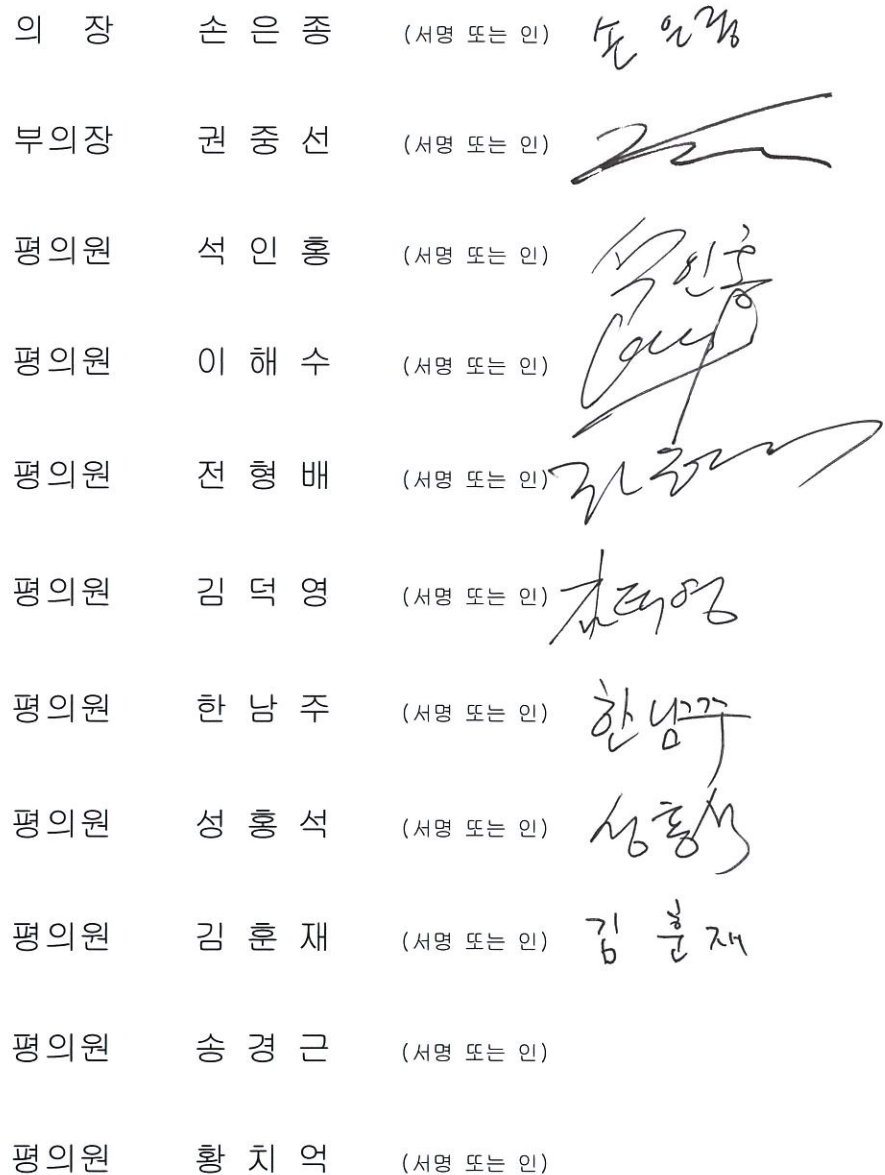 의 장 손 은 종 (서명 또는 인) 손 은 종
부의장 권 중 선 (서명 또는 인)
평의원 석 인 홍 (서명 또는 인) 석인홍
평의원 이 해 수 (서명 또는 인)
평의원 전 형 배 (서명 또는 인)
평의원 김 덕 영 (서명 또는 인) 김덕영
평의원 한 남 주 (서명 또는 인) 한남주
평의원 성 홍 석 (서명 또는 인) 성홍석
평의원 김 훈 재 (서명 또는 인) 김 훈 재
평의원 송 경 근 (서명 또는 인)
평의원 황 치 억 (서명 또는 인)